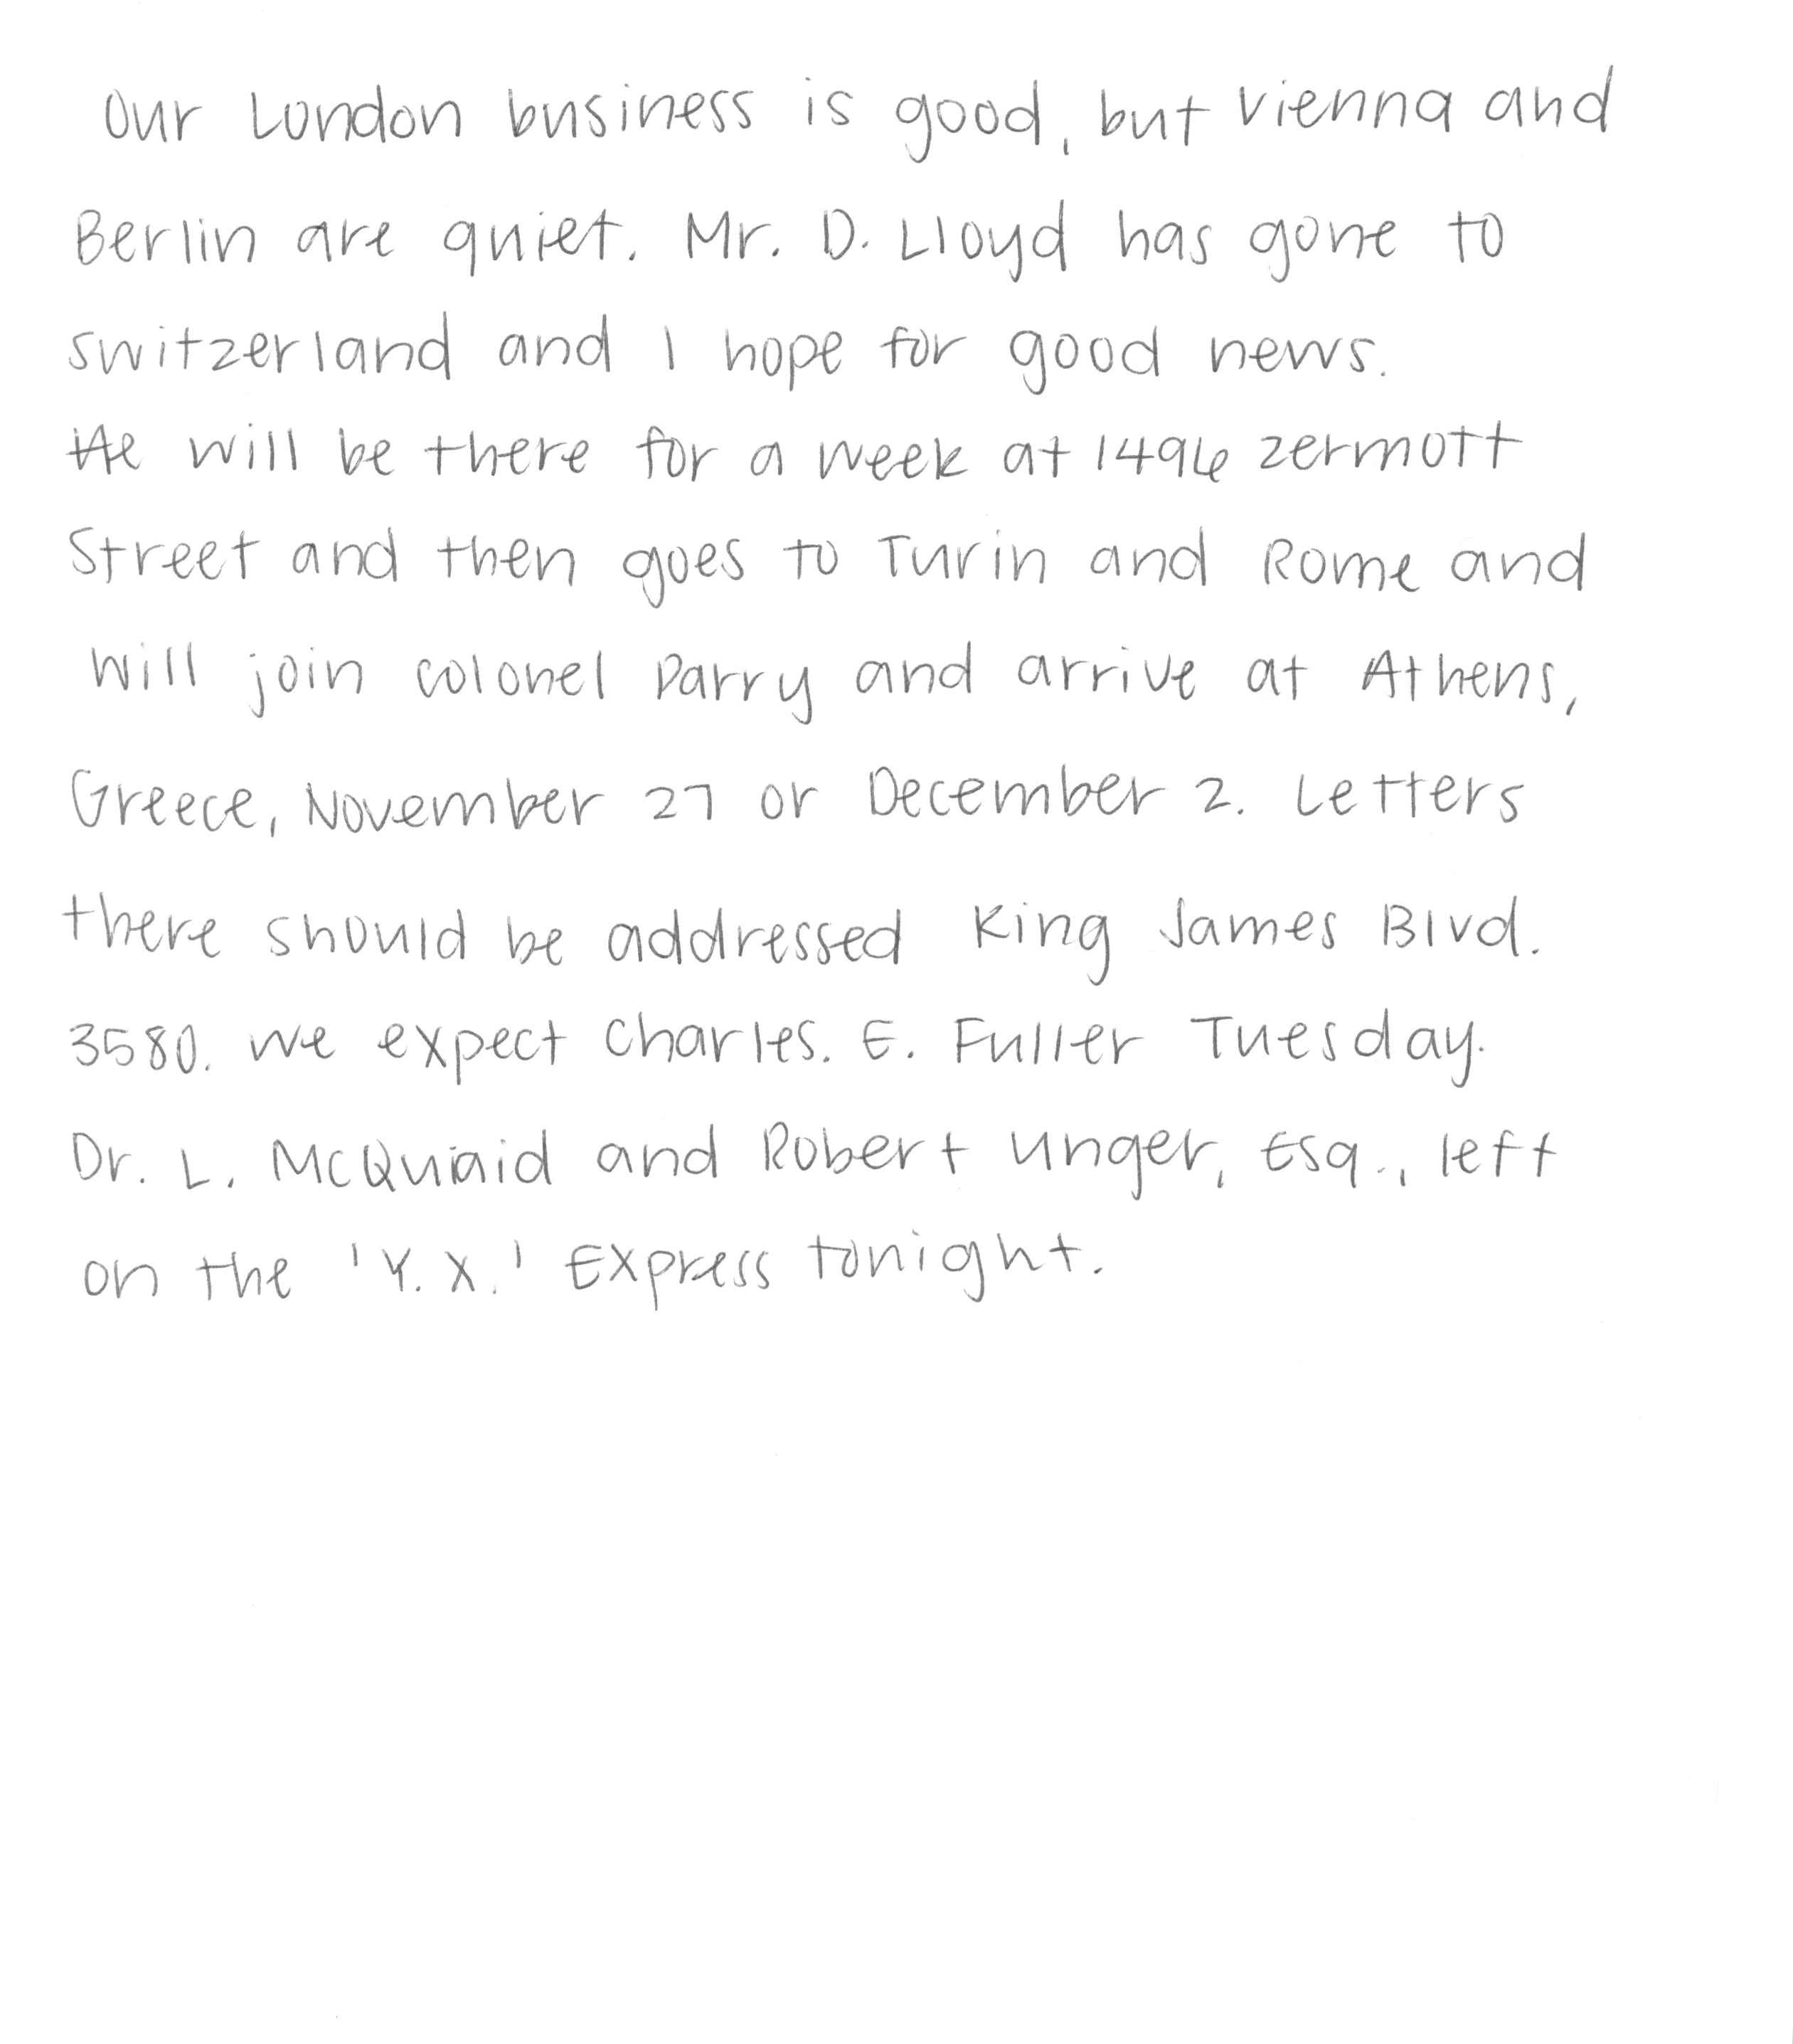 Our London business is good, but Vienna and
Berlin are quiet. Mr. D. Lloyd has gone to
Switzerland and I hope for good news.
He will be there for a week at 1496 Zermott
Street and then goes to Turin and Rome and
will join Colonel Parry and arrive at Athens,
Greece, November 27 or December 2. Letters
there should be addressed King James Blvd.
3580. We expect Charles. E. Fuller Tuesday.
Dr. L. McQuaid and Robert Unger, Esq., left
on the 'Y.X.' Express tonight.